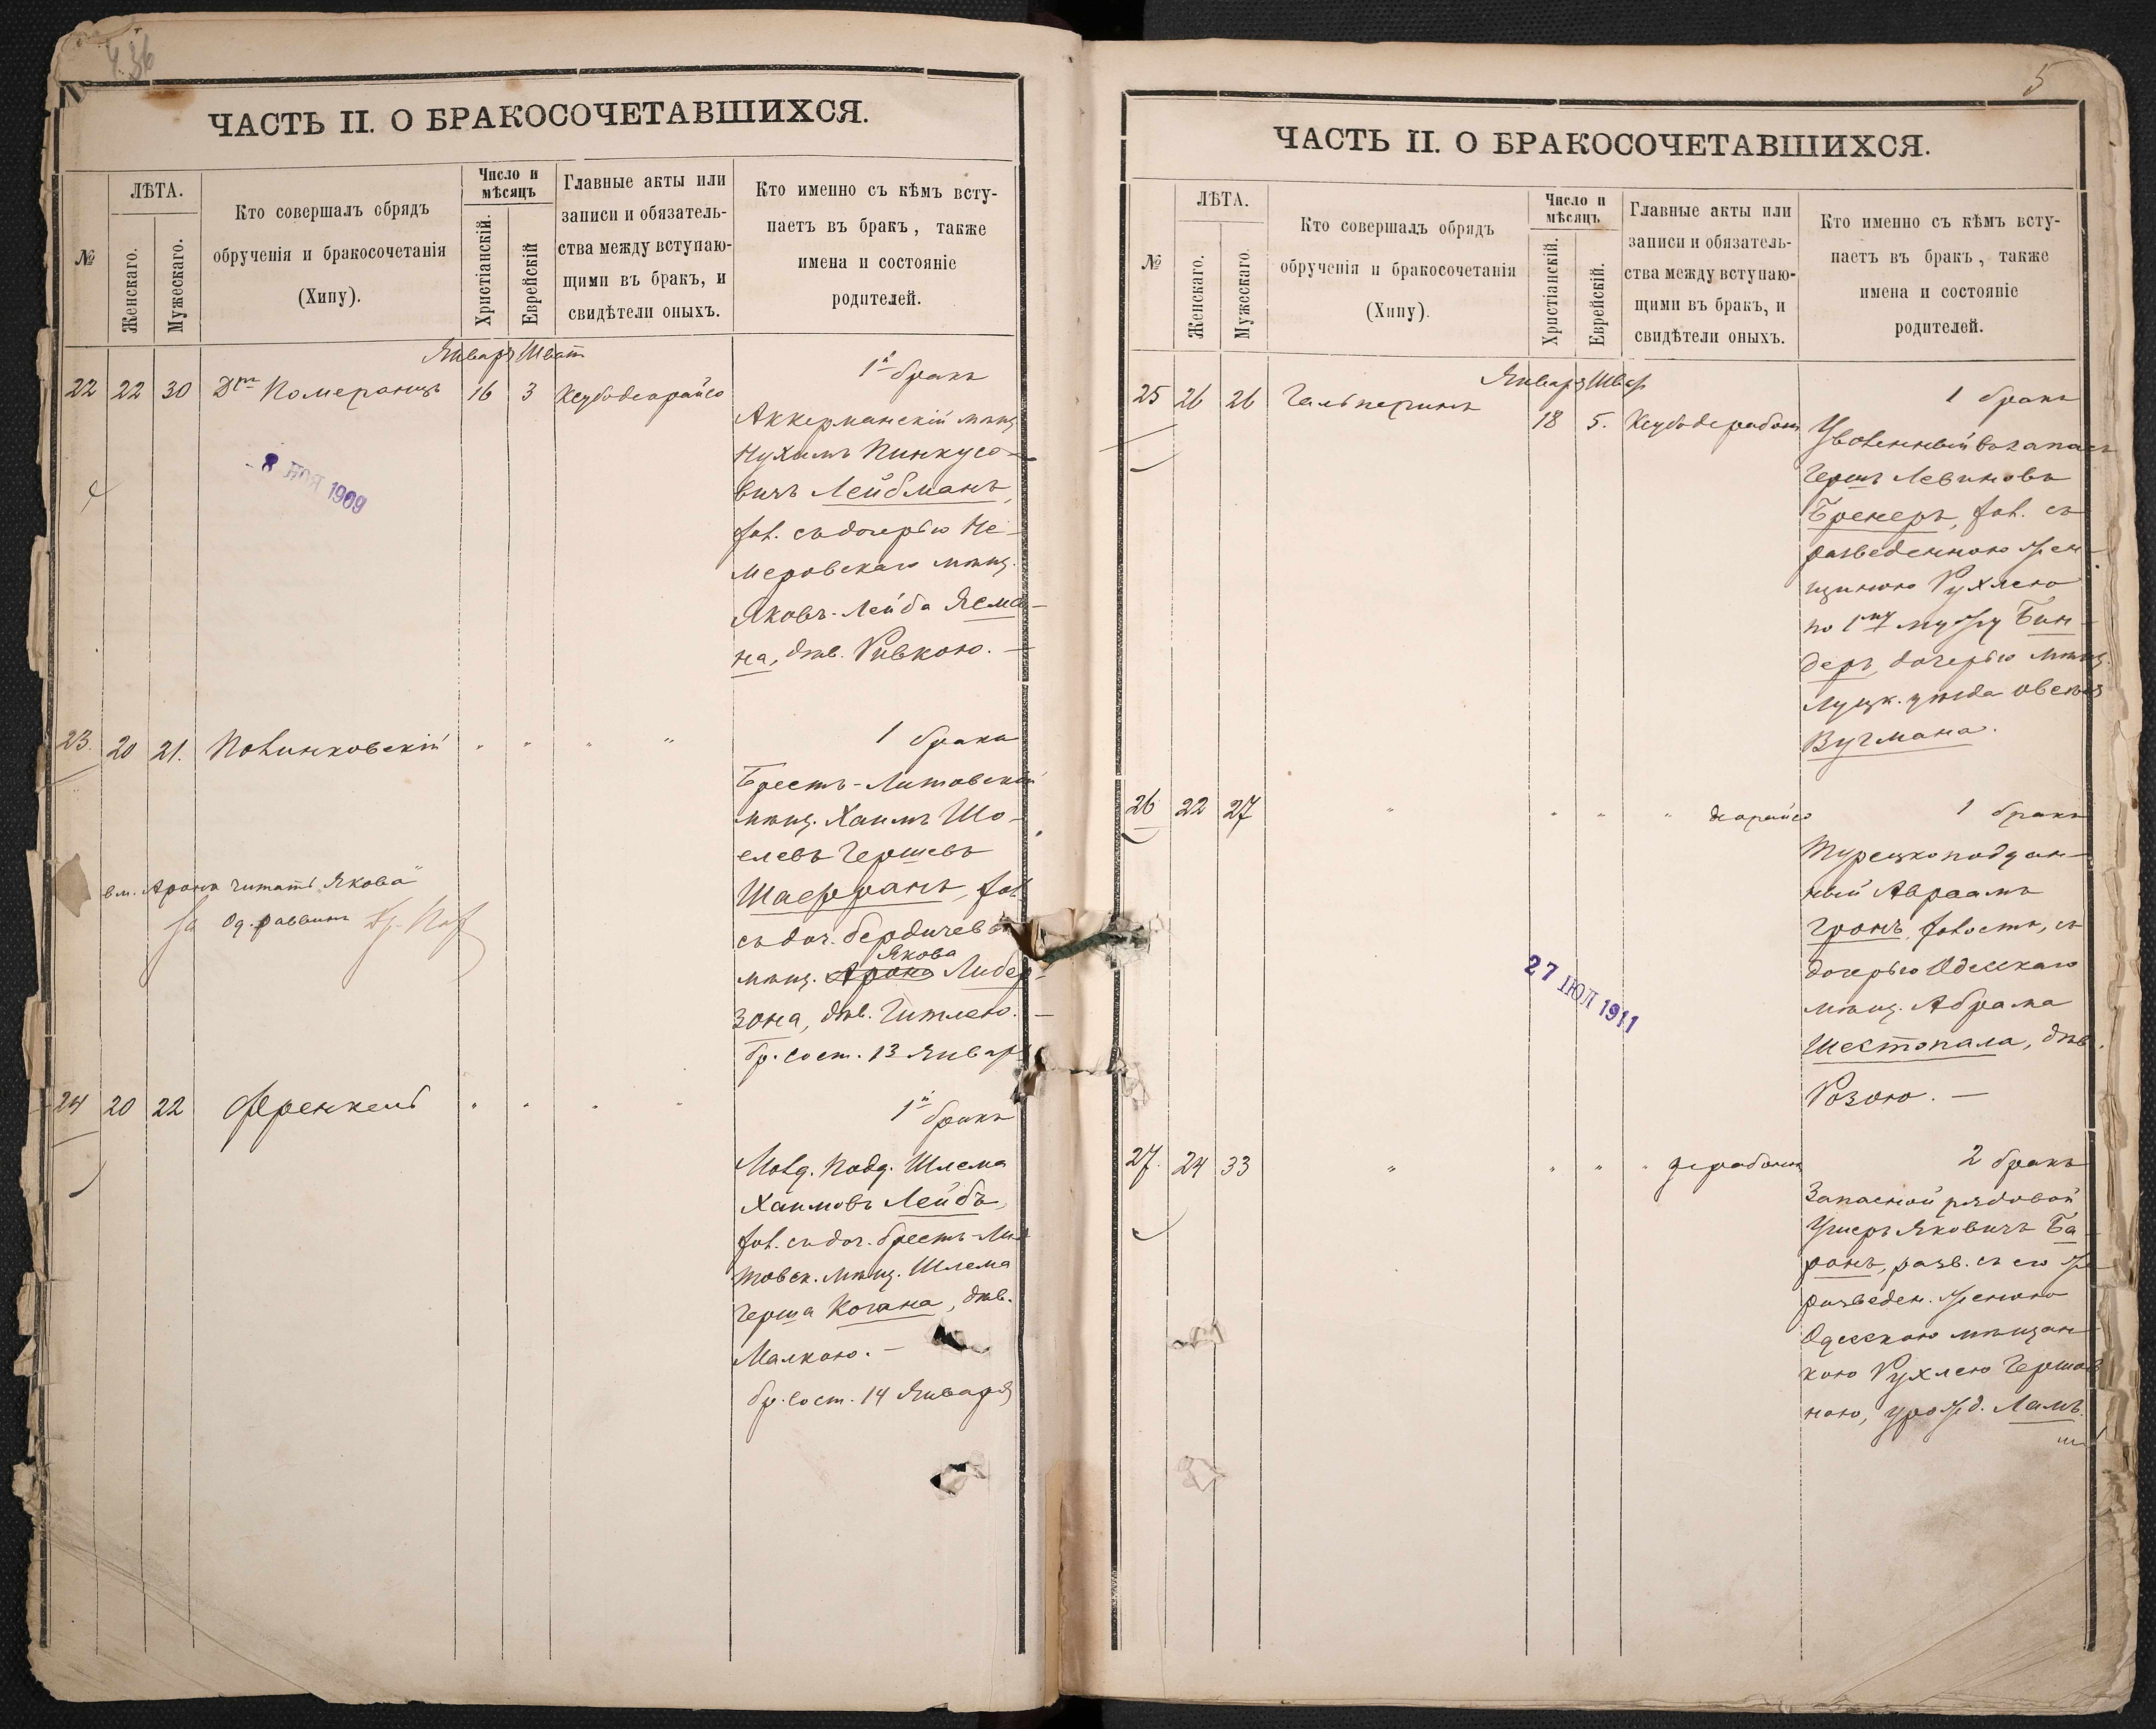 436
ЧАСТЬ II. О БРАКОСОЧЕТАВШИХСЯ.
№
ЛѢТА.
Женскаго.
Мужескаго.
Кто совершалъ обрядъ
обрученія и бракосочетанія
(Хипу).
Число и
мѣсяцъ
Христіанскій.
Еврейскій
Главные акты или
записи и обязатель-
ства между вступаю-
щими въ бракъ, и
свидѣтели оныхъ.
Кто именно съ кѣмъ всту-
паетъ въ бракъ, также
имена и состояніе
родителей.
Январь Шватъ
22 22 30 Померанцъ 16 3 Кеубодеорайсо
1й бракъ
Аккерманскій мѣщ.
Нухимъ Пинкусо-
вичъ Лейбманъ,
хол. съ дочерью Не-
меровскаго мѣщ.
Яковъ-Лейба Ясма-
на, дѣв. Ривкою. —
8 НОЯ 1909
23. 20 21. Полинковскій " " " "
1 бракъ
Брестъ-Литовскій
мѣщ. Хаимъ Шо-
елевъ Гершевъ
Шаефранъ, хол.
съ доч. бердичев
Якова
мѣщ. Арона Либер-
зона, дѣв. Гитлею. —
бр. сост. 13 Январ
вм. Арона читать "Якова"
За Од. раввинъ
24 20 22 Френкель " " " "
1й бракъ
Молд. подд. Шлема
Хаимовъ Лейбъ,
хол. съ доч. брестъ-Ли-
товск. мѣщ. Шлема
Герша Когана, дѣв.
Малкою. —
бр. сост. 14 Января
5
ЧАСТЬ II. О БРАКОСОЧЕТАВШИХСЯ.
№
ЛѢТА.
Женскаго.
Мужескаго.
Кто совершалъ обрядъ
обрученія и бракосочетанія
(Хипу).
Число и
мѣсяцъ
Христіанскій.
Еврейскій.
Главные акты или
записи и обязатель-
ства между вступаю-
щими въ бракъ, и
свидѣтели оныхъ.
Кто именно съ кѣмъ всту-
паетъ въ бракъ, также
имена и состояніе
родителей.
Январь Шват
25 26 26 Гальперинъ 18 5. Кеубодерабон
1 бракъ
Уволенный въ запасъ
Гершъ Левиновъ
Бренеръ, хол. съ
разведенною жен-
щиною Рухлею
по 1му мужу Бин-
деръ, дочерью мѣщ.
Луцк. уѣзда Овсея
Вугмана.
26 22 27 " " " " деорайсо
1 бракъ
Турецкоподдан-
ный Авраамъ
Гронъ, холостъ, съ
дочерью Одесскаго
мѣщ. Абрама
Шестопала, дѣв.
Розою. —
27 ІЮЛ 1911
27. 24 33 " " " " дерабонон
2 бракъ
Запасной рядовой
Ушеръ Яковичъ Ба-
ронъ, разв. съ его же
разведен. женою
Одесскою мѣщан-
кою Рухлею Гершов-
ною, урожд. Ламъ.